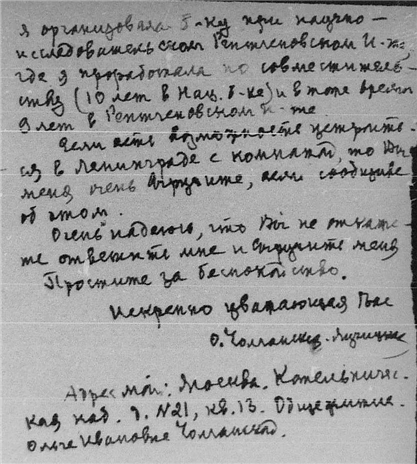 я организовала б-ку при научно-
исследовательском Рентгеновском И-те,
где я проработала по совместитель-
ству (10 лет в Нац. б-ке) и в то же время
9 лет в Рентгеновском И-те.
Если есть возможность устроить-
ся в Ленинграде с комнатой, то Вы
меня очень выручите, если сообщите
об этом.
Очень надеюсь, что Вы не откаже-
те ответить мне и выручите меня
Простите за беспокойство.
Искренно уважающая Вас
О. Чолганская-
Адрес мой: Москва. Котельничес-
кая наб. д. №21, кв. 13. Общежитие.
Ольге Ивановне Чолганской.